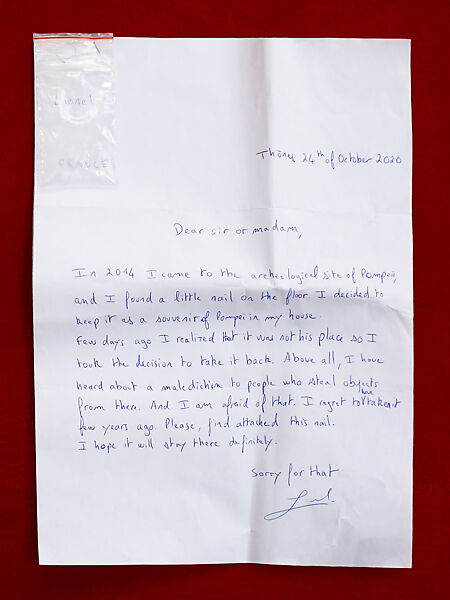 Lionel
FRANCE
Thônes 24th of October 2020
Dear sir or madam,
In 2014 I came to the archeological site of Pompeii,
and I found a little nail on the floor. I decided to
keep it as a souvenir of Pompei in my house.
Few days ago I realized that it was not his place so I
took the decision to take it back. Above all, I have
heard about a malediction to people who steal objects
from there. And I am afraid of that. I regret to have taken it
few years ago. Please, find attached this nail.
I hope it will stay there definitely.
Sorry for that